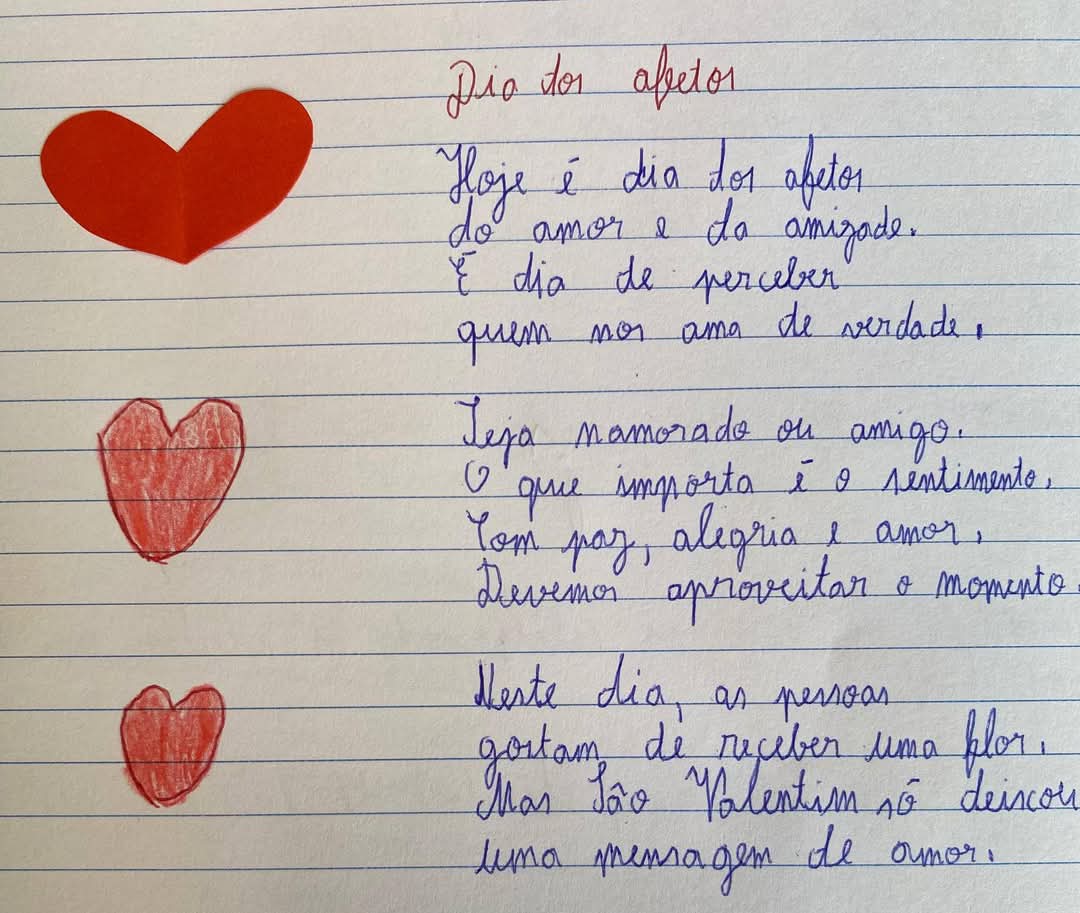 Dia dos afetos
Hoje é dia dos afetos
do amor e da amizade.
É dia de perceber
quem nos ama de verdade.
Seja namorado ou amigo.
O que importa é o sentimento.
Com paz, alegria e amor,
Devemos aproveitar o momento.
Neste dia, as pessoas
gostam de receber uma flor.
Mas São Valentim só deixou
uma mensagem de amor.